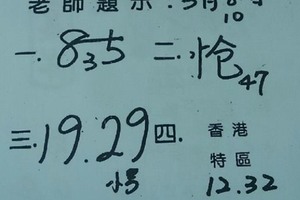 老師題示：3月8号
10
一. 835 二. 怆47
三. 19.29 四. 香港
小号 特區
12.32